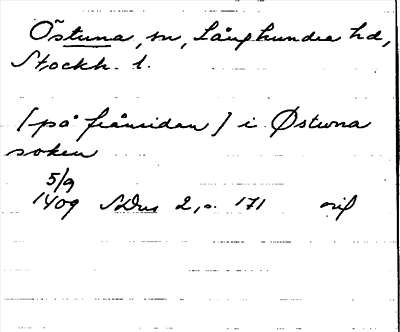 Östuna, sn, Långhundra hd,
Stockh. l.
[på frånsidan] i Østwna
soken
5/9
1409 SDns 2, s. 171 orig